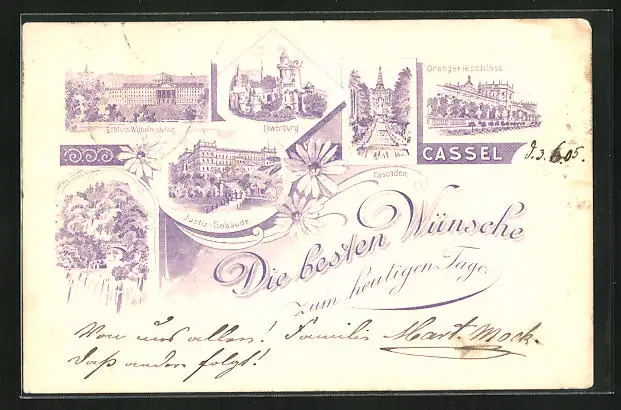 Orangerieschloss
Schloss Wilhelmshöhe
Löwenburg
CASSEL d. 3. 6. 05.
Cascaden
Justiz-Gebäude
Die besten Wünsche
zum heutigen Tage.
Von uns allen! Familie Mart. Mock.
daß andere folgt!